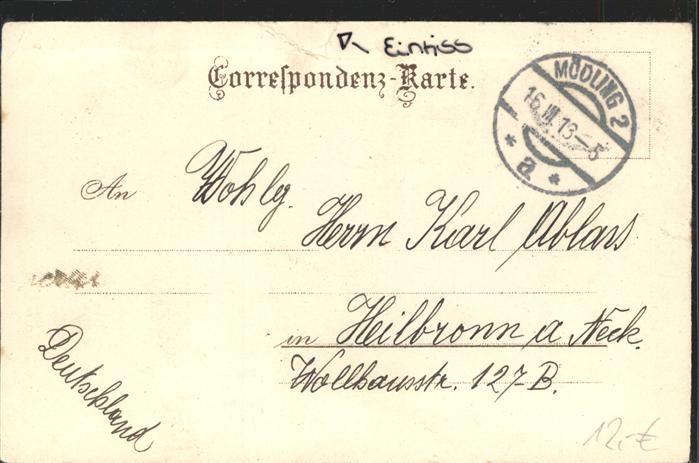 Einriss
Correspondenz-Karte.
MÖDLING 2
16.III.13-5
* a *
An Wohlg.
Herrn Karl Ablass
in Heilbronn a. Neck.
Wollhausstr. 127-B.
Deutschland
12,-€